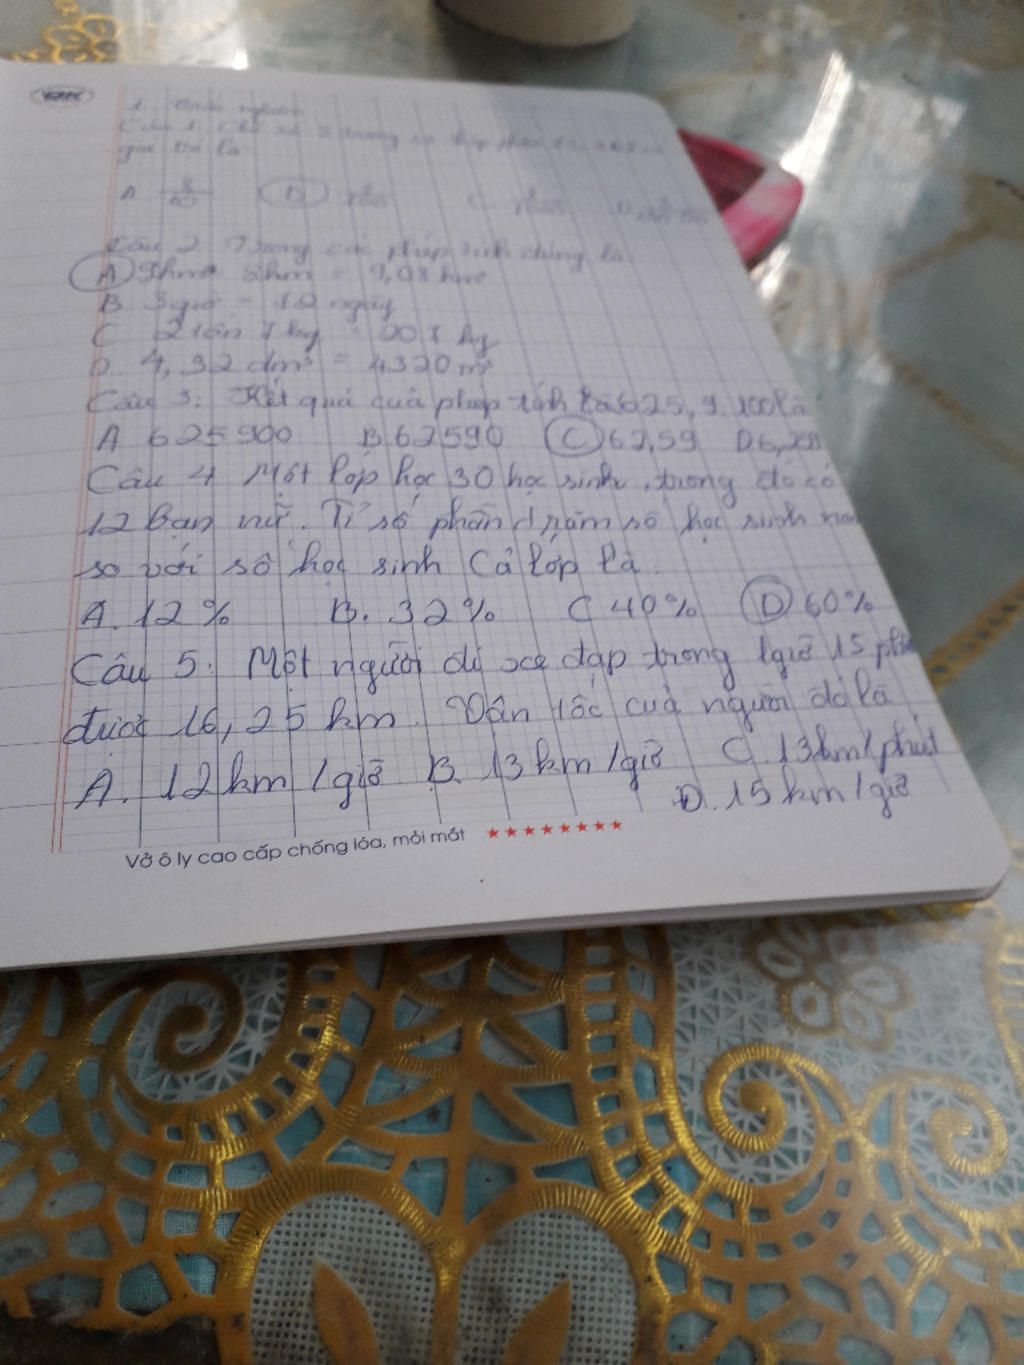 Câu 2 Trong các phép tính đúng là:
A 9hm 8hm = 9,08 hm
B 3 giờ = 12 ngày
C 2 tấn 7 kg = 207 kg
D. 4,32 dm³ = 4320 m³
Câu 3: Kết quả của phép tính là 625,9.100 là
A 625900 B 62590 C 62,59 D 6,259
Câu 4 Một lớp học 30 học sinh, trong đó có
12 bạn nữ. Tỉ số phần trăm số học sinh nam
so với số học sinh cả lớp là.
A. 12% B. 32% C 40% D 60%
Câu 5: Một người đi xe đạp trong 1giờ 15 phút
được 16,25 km. Vận tốc của người đó là
A. 12km/giờ B. 13km/giờ C. 13km/phút
D. 15km/giờ
Vở ô ly cao cấp chống lóa, mỏi mắt